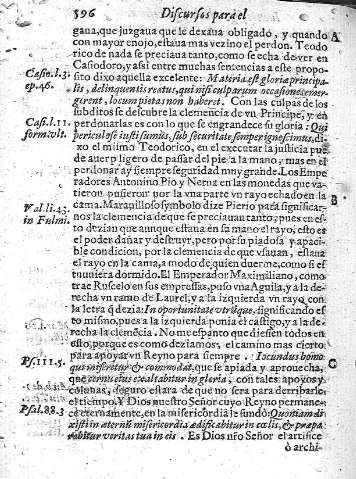 596 Discursos para el
gaua, que juzgaua que le dexaua obligado, y quando A
con mayor enojo, estaua mas vezino el perdon. Teodo
rico de nada se preciaua tanto, como se echa de ver en
Casiodoro, y assi entre muchas sentencias a este propo-
Casio.l.3. sito dixo aquella excelente: Materia est gloriæ principa-
ep.46. lis, delinquentis reatus, qui nisi culparum occasiones emer-
girent, locum pietas non haberet. Con las culpas de los
subditos se descubre la clemencia de vn Principe, y en
Casio.l.11. perdonarlas es con lo que se engrandece su gloria: Qui
form.vlt. periculose iusti sumus, sub securitate semper ignoscimus, di-
xo el mismo Teodorico, en el executar la justicia pue
de auer peligro de passar del pie a la mano, mas en el
perdonar ay siempre seguridad muy grande. Los Empe
radores Antonino Pio y Nerua en las monedas que va-
tieron, pusieron por la vna parte vn rayo echado en la B
Val.li.43. cama. Marauilloso symbolo dize Pierio para significar-
in Fulmi. nos la clemencia de que se preciauan tanto, pues en es-
to dezian que aunque estaua en su mano el rayo, esto es
el poder dañar y destruyr, pero por su piadosa y apaci-
ble condicion, por la clemencia de que vsauan, estaua
el rayo en la cama, a modo de quien duerme, como si es
tuuiera dormido. El Emperador Maximiliano, como
trae Ruscelo en sus empressas, puso vna Aguila, y a la de
recha vn ramo de Laurel, y a la izquierda vn rayo con
la letra q̃ dezia: In oportunitate vtrũque, significando es
to mismo, pues a la izquierda ponia el castigo, y a la de-
recha la clemẽcia. No me espanto que diessen todos en
esto, porque es como deziamos, el camino mas cierto
para apoyar vn Reyno para siempre. Iocundus homo C
Ps.111.5. qui miseretur & commodat, que se apiada y aprouecha,
que cornu eius exaltabitur in gloria, con tales apoyos y
colunas, seguro estara de que no sera para derribarlo
el tiempo. Y Dios nuestro Señor cuyo Reyno permane-
Psal.88.3 ce eternamente, en la misericordia le fundò: Quoniam di
xisti in æternũ misericordia ædificabitur in cœlis, & præpa
rabitur veritas tua in eis. Es Dios nr̃o Señor el artifice
ò archi-